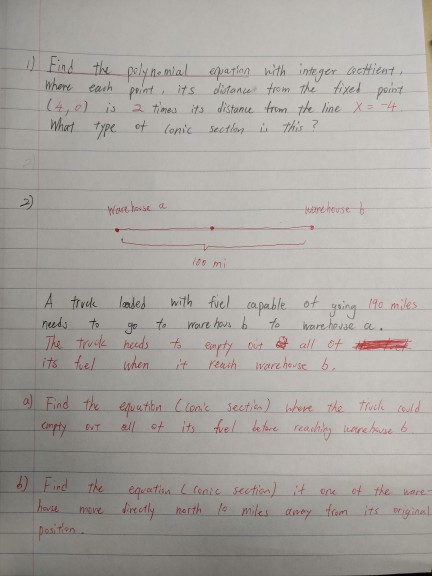 1) Find the polynomial equation with integer coefficient,
where each point, its distance from the fixed point
(4,0) is 2 times its distance from the line x = -4
What type of conic section is this?
2)
warehouse a warehouse b
100 mi
A truck loaded with fuel capable of going 190 miles
needs to go to warehous b to warehouse a.
The truck needs to empty out all of
its fuel when it reach warehouse b.
a) Find the equation (conic section) where the truck could
empty out all of its fuel before reaching warehouse b
b) Find the equation (conic section) if one of the ware-
house move directly north 10 miles away from its original
position.